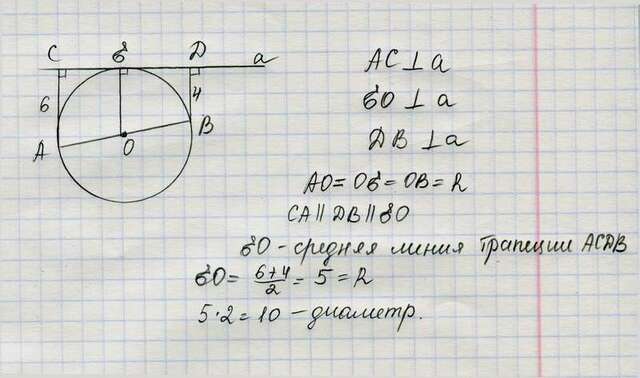 C б Д a
6 4
A O B
AC ⊥ a
бO ⊥ a
ДB ⊥ a
AO = Oб = OB = R
CA || ДB || бO
бO - средняя линия трапеции ACДB
бO = (6+4)/2 = 5 = R
5·2 = 10 - диаметр.